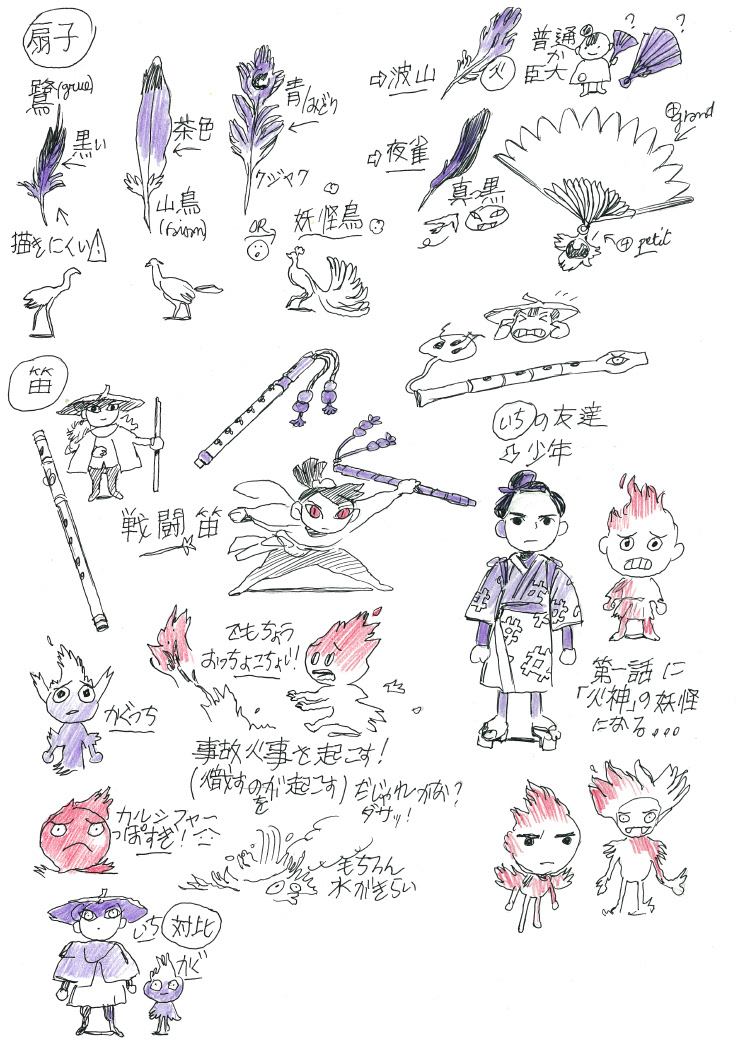 扇子
鷺(grue)
黒い
描きにくい!
茶色
山鳥
青/みどり
クジャク
OR
妖怪鳥
⇨波山
火
普通
か
臣大
?
?
⇨夜雀
真っ黒
⊕grand
⊕petit
笛
戦闘笛
いちの友達
少年
かぐっち
でもちょう
おっちょこちょい!
第一話に
「火神」の妖怪
になる...
事故火事を起こす!
だじゃれかな?
ダサッ!
カルシファー
っぽすぎ!
もちろん
水がきらい
いち
対比
かぐ